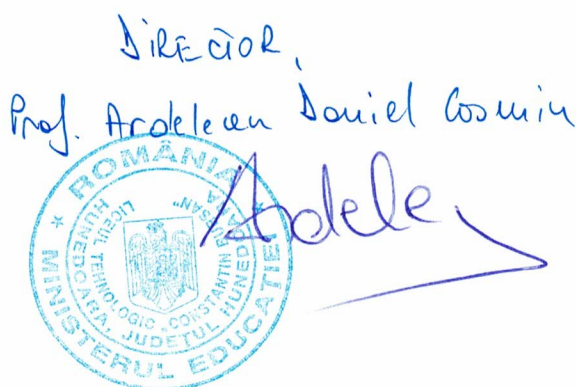 DIRECTOR,
Prof. Ardelean Daniel Cosmin
Ardele
* ROMÂNIA *
MINISTERUL EDUCAȚIEI
LICEUL TEHNOLOGIC „CONSTANTIN BURSAN”
HUNEDOARA, JUDEȚUL HUNEDOARA